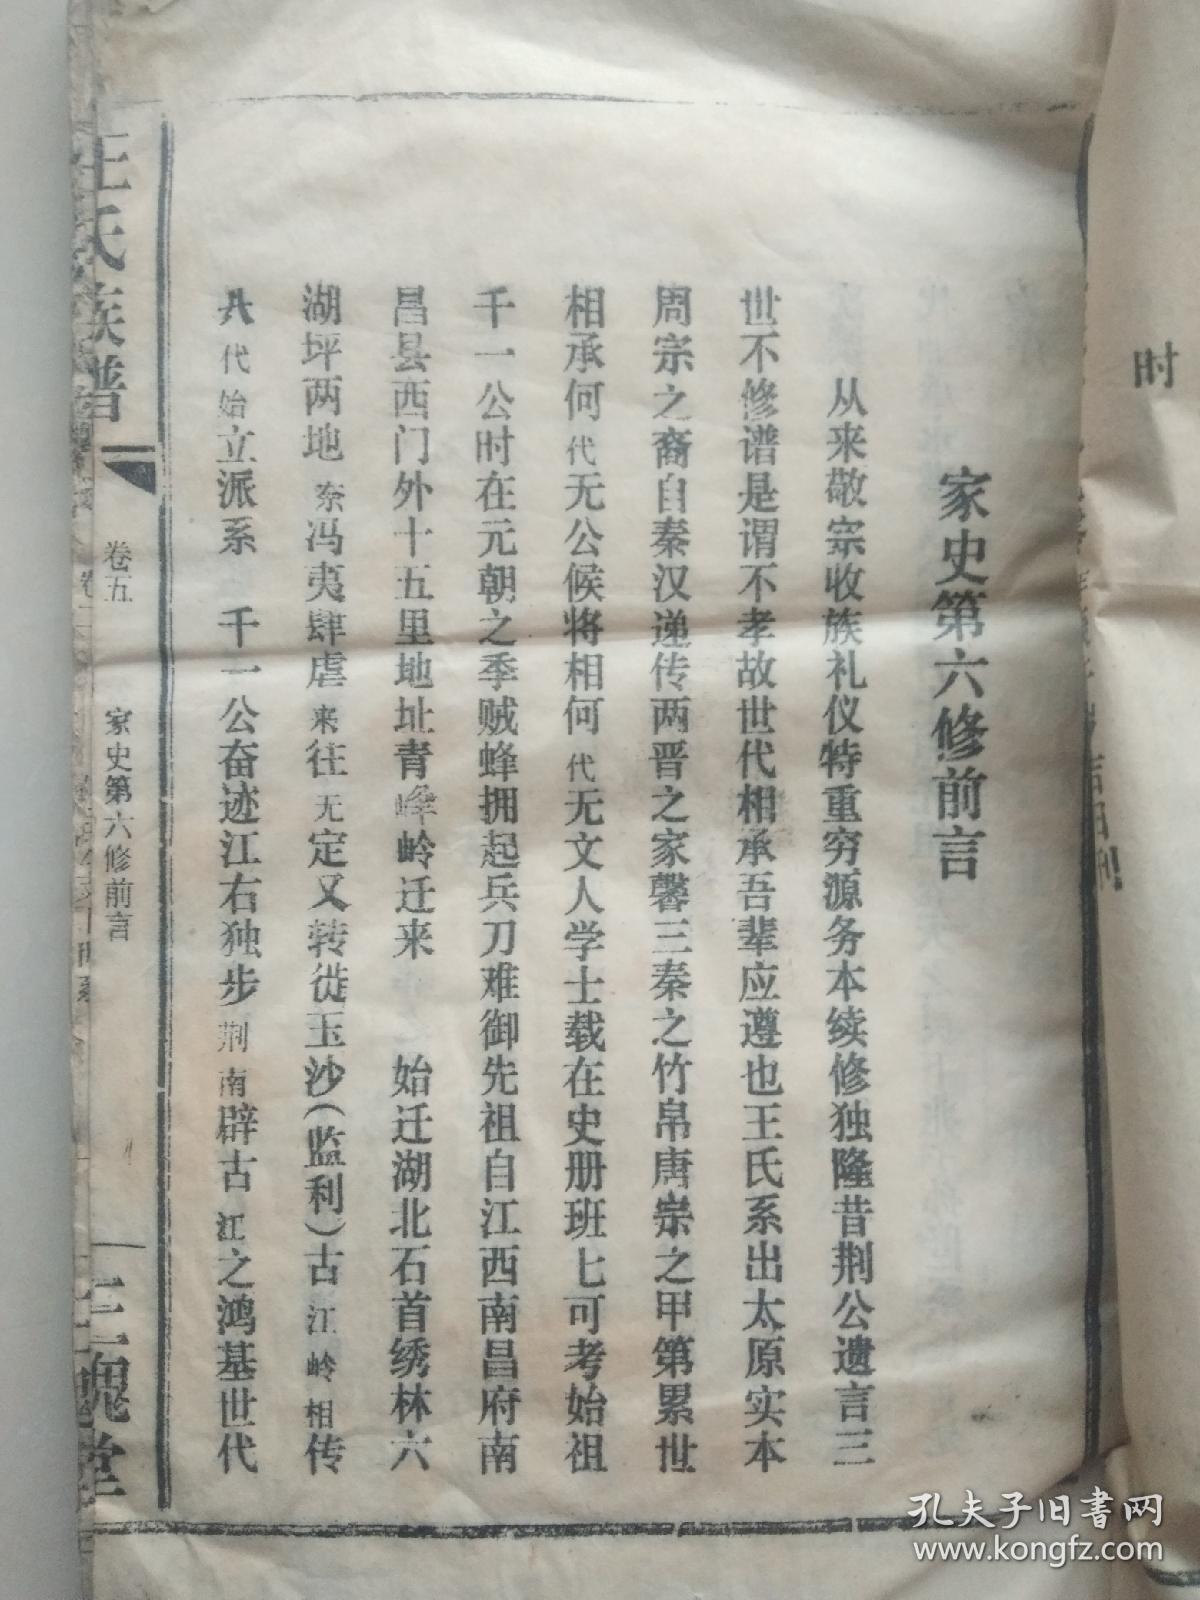 时
家史第六修前言
从来敬宗收族礼仪特重穷源务本续修独隆昔荆公遗言三
世不修谱是谓不孝故世代相承吾辈应遵也王氏系出太原实本
周宗之裔自秦汉递传两晋之家馨三秦之竹帛唐崇之甲第累世
相承何代无公候将相何代无文人学士载在史册班七可考始祖
千一公时在元朝之季贼蜂拥起兵刀难御先祖自江西南昌府南
昌县西门外十五里地址青峰岭迁来 始迁湖北石首绣林六
湖坪两地奈冯夷肆虐来往无定又转徙玉沙(监利)古江岭相传
八代始立派系 千一公奋迹江右独步荆南辟古江之鸿基世代
王氏族谱
卷五
家史第六修前言
三槐堂
孔夫子旧书网
www.kongfz.com